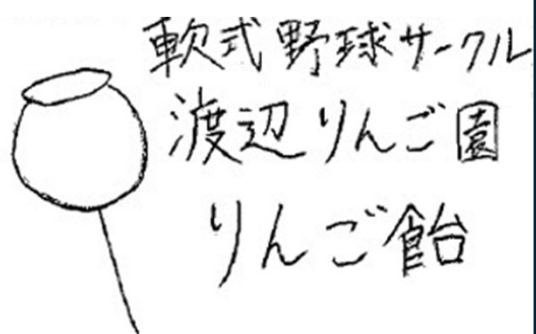 軟式野球サークル
渡辺りんご園
りんご飴